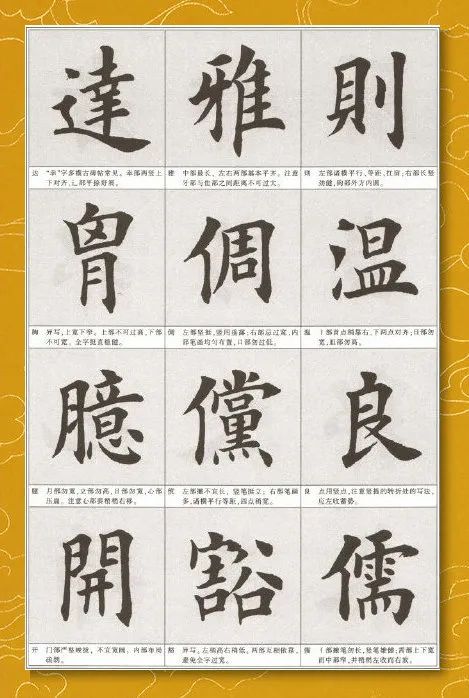 則
则 左部诸横平行、等距,扛肩;右部长竖
劲健,钩部外方内圆。
温
温 氵部首点稍靠右,下两点对齐;日部勿
宽,皿部勿高。
良
良 点用竖点,注意竖提的转折处的写法,
应左收蓄势。
儒
儒 亻部撇笔勿长,竖笔雄健;需部上下宽
而中部窄,并稍稍左收而右放。
雅
雅 中部最长,左右两部基本平齐。注意
牙部与隹部之间距离不可过大。
倜
倜 左部坚挺,竖用垂露;右部忌过宽,内
部笔画均匀布置,口部勿过低。
儻
傥 左部撇不宜长,竖笔挺立;右部笔画
多,诸横平行等距,四点稍宽。
豁
豁 异写。左稍高右稍低。两部互相依靠,
避免全字过宽。
達
达 “幸”字多横古碑帖常见。幸部两竖上
下对齐,辶部平捺舒展。
胷
胸 异写,上宽下窄。上部不可过高,下部
不可宽。全字挺直稳健。
臆
臆 月部勿宽,立部勿高,日部勿宽,心部
压扁。注意心部要稍稍右移。
開
开 门部严整峻拔,不宜宽阔。内部布局
疏朗。